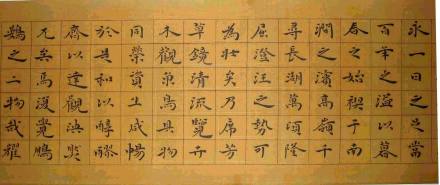 永一日之足當
百年之溢以暮
春之始禊于南
澗之濱高嶺千
尋長湖萬頃隆
屈澄汪之勢可
為壯矣乃席芳
草鏡清流覽卉
木觀魚鳥具物
同榮資生咸暢
於是和以醇醪
齊以達觀泱然
兀矣焉復覺鵬
鷃之二物哉耀